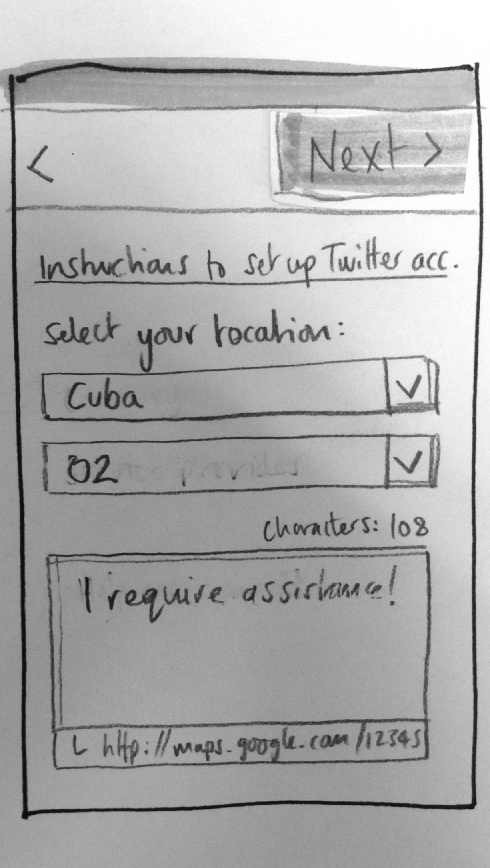 < Next >
Instructions to set up Twitter acc.
Select your location:
Cuba
O2
characters: 108
I require assistance!
L http://maps.google.com/12345